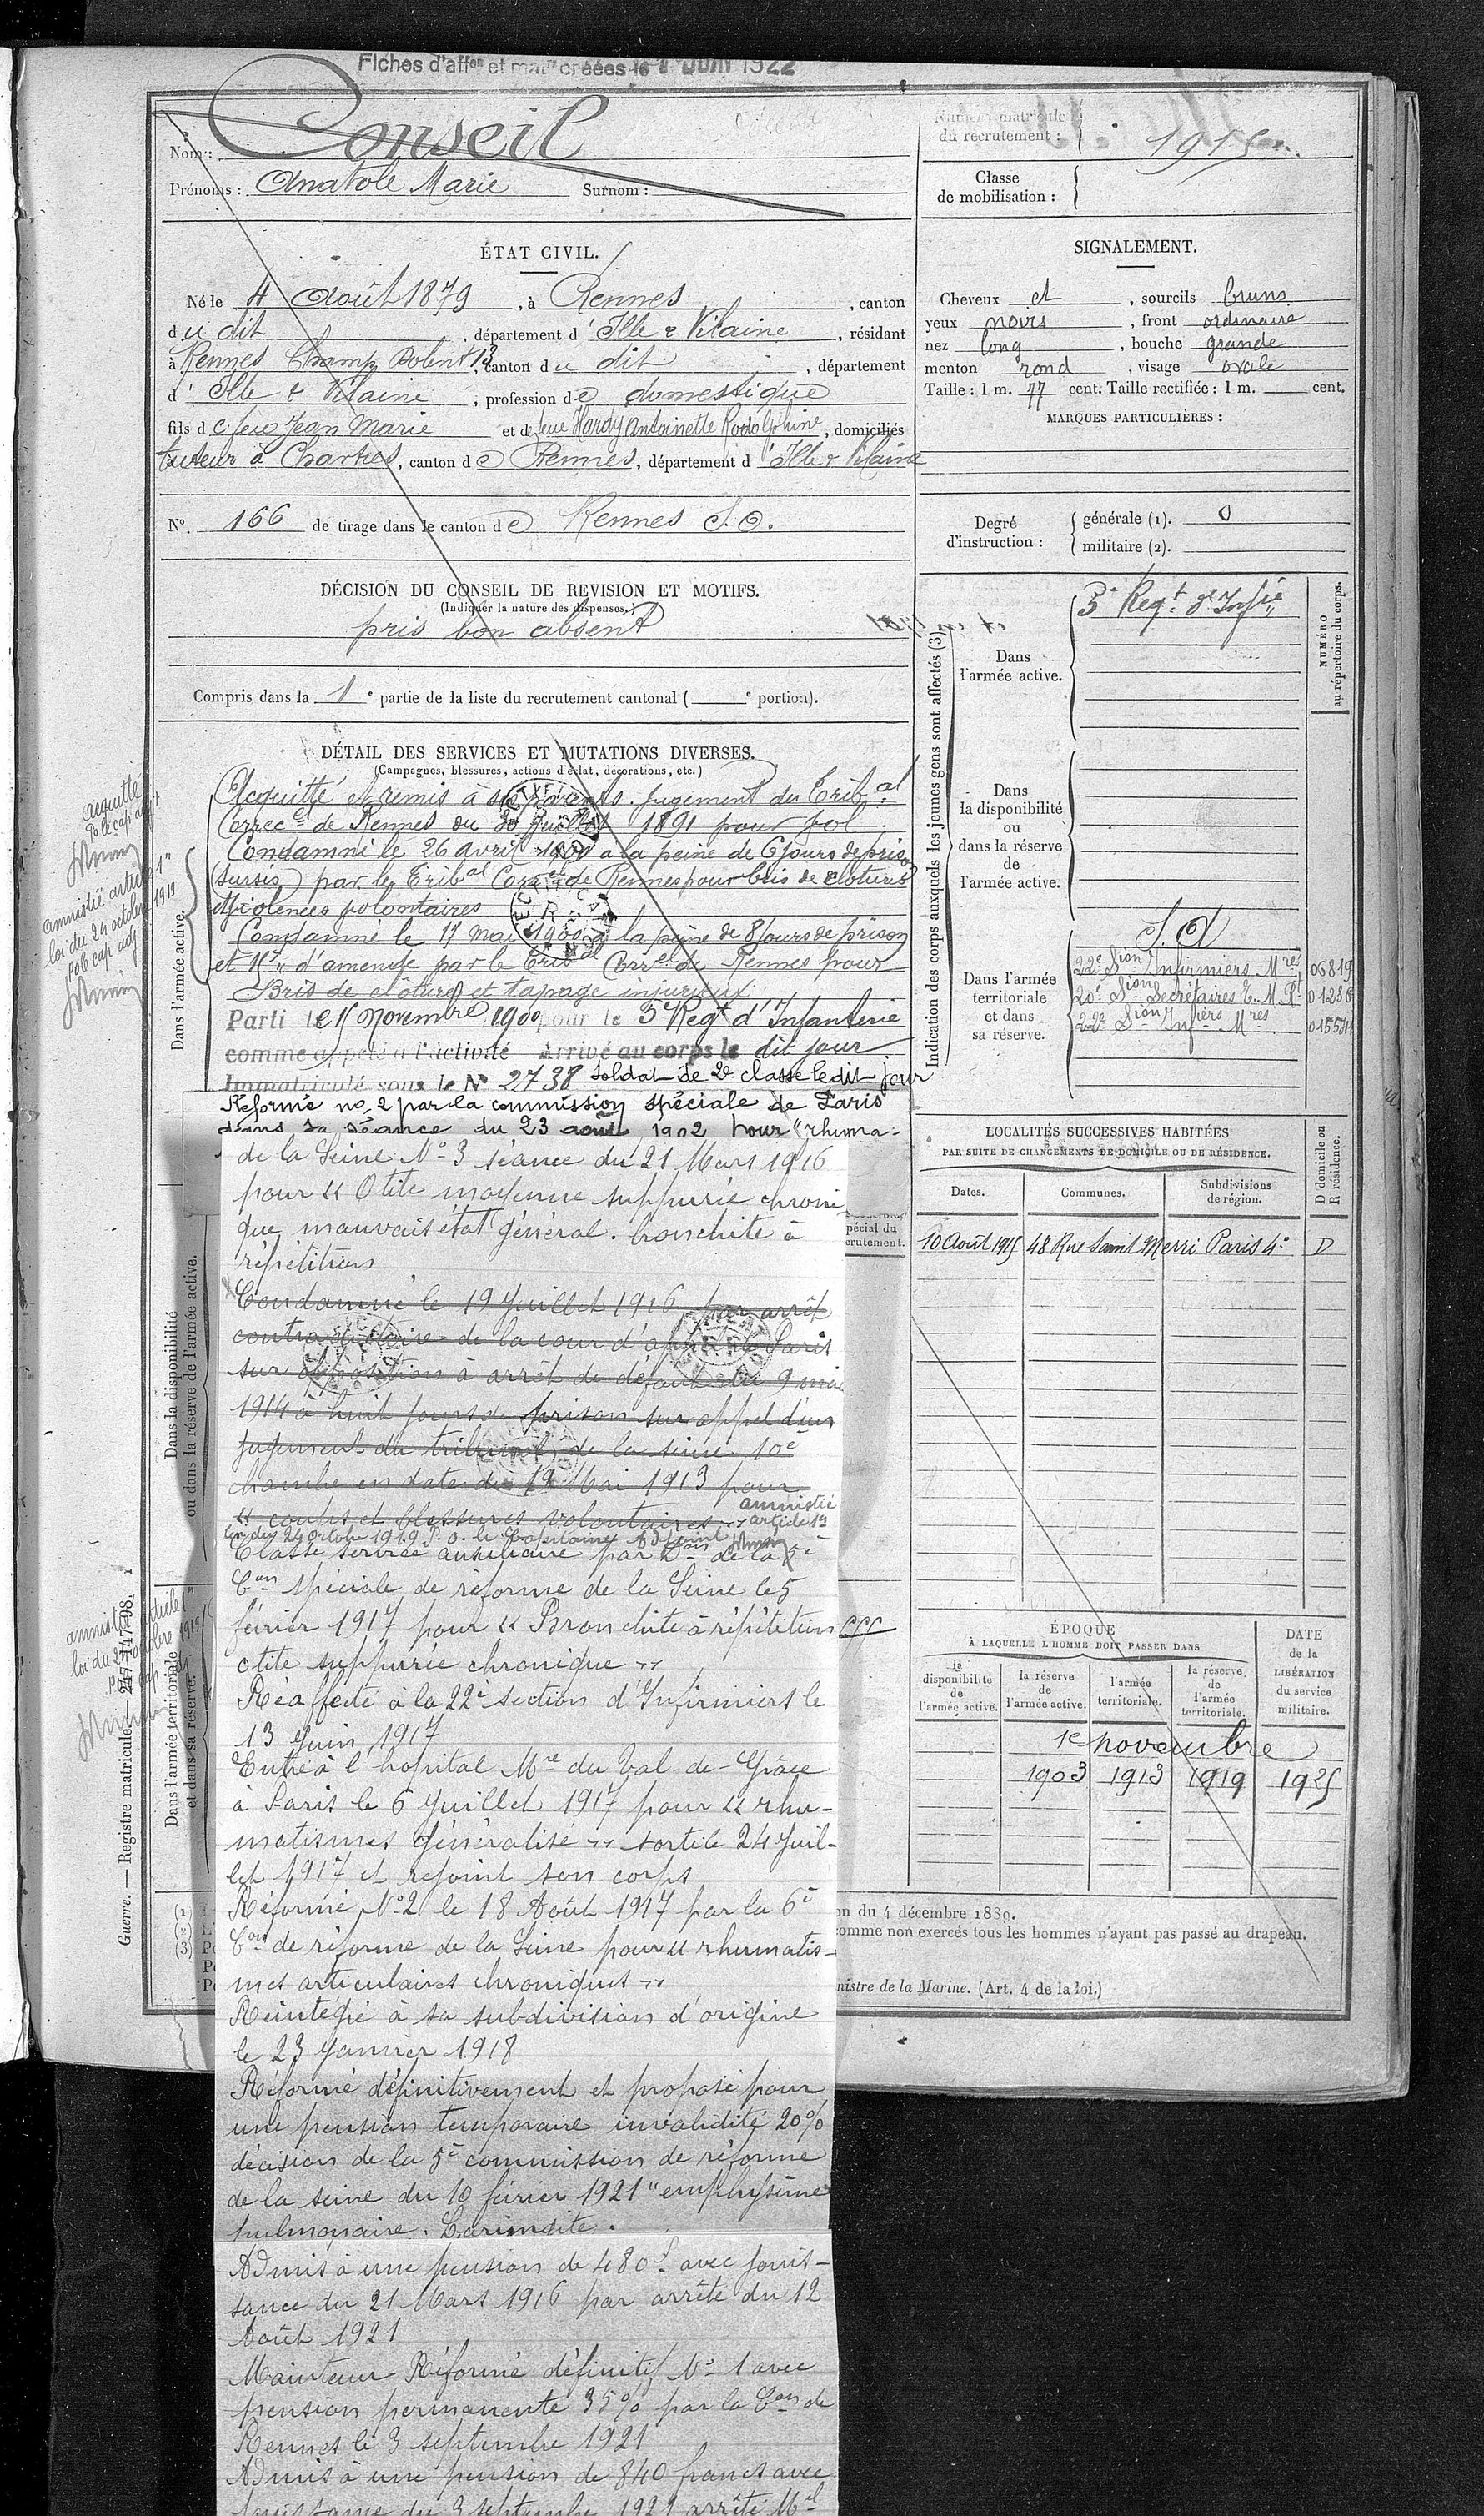 Fiches d'affon et matle créées le 1 Juin 1922
Nom : Conseil
Prénoms : Anatole Marie Surnom :
Numéro matricule du recrutement : 1915
Classe de mobilisation :
ÉTAT CIVIL.
Né le 4 Août 1879, à Rennes, canton
du dit, département d'Ille & Vilaine, résidant
à Rennes Champ Dolent 13, canton du dit, département
d'Ille & Vilaine, profession de domestique
fils de feu Jean Marie et de feue Hardy Antoinette Rodolphine, domiciliés
tuteur à Chartres, canton de Rennes, département d'Ille & Vilaine
N° 166 de tirage dans le canton de Rennes S.O.
SIGNALEMENT.
Cheveux et, sourcils bruns
yeux noirs, front ordinaire
nez long, bouche grande
menton rond, visage ovale
Taille : 1 m. 77 cent. Taille rectifiée : 1 m. cent.
MARQUES PARTICULIÈRES :
Degré d'instruction : générale (1). 0
militaire (2).
DÉCISION DU CONSEIL DE REVISION ET MOTIFS.
(Indiquer la nature des dispenses.)
pris bon absent
Compris dans la 1e partie de la liste du recrutement cantonal ( e portion).
DÉTAIL DES SERVICES ET MUTATIONS DIVERSES.
(Campagnes, blessures, actions d'éclat, décorations, etc.)
Dans l'armée active.
Acquitté et remis à ses parents. Jugement du Tribal
Correcel de Rennes du 30 Juillet 1891 pour vol.
Condamné le 26 avril 1900 à la peine de 6 jours de prison
(sursis) par le Tribal Correl de Rennes pour bris de clotures
et violences volontaires
Condamné le 17 Mai 1900 à la peine de 8 jours de prison
et d'amende par le Tribal Correl de Rennes pour
Bris de clôture et tapage injurieux
Parti le 15 Novembre 1900 pour le 3e Regt d'Infanterie
comme appelé à l'activité Arrivé au corps le dit jour
Immatriculé sous le N° 2738 soldat de 2e classe le dit jour
Réformé no 2 par la commission spéciale de Paris
dans sa séance du 23 août 1902 pour "rhuma-
de la Seine N° 3 séance du 21 Mars 1916
pour "Otite moyenne suppurée chroni-
que mauvais état général. bronchite à
répétition
Condamné le 19 Juillet 1916 par arrêt
contradictoire de la cour d'appel de Paris
sur opposition à arrêt de défaut du 9 mai
1914 à huit jours de prison sur appel d'un
jugement du tribunal de la seine 10e
chambre en date du 19 Mai 1913 pour
"coups et blessures volontaires" amnistié article 1er
loi du 24 octobre 1919 P.O. le Capitaine Adjoint
Classé service auxiliaire par Don de la 5e
Con spéciale de réforme de la Seine le 5
février 1917 pour "Bronchite à répétition
otite suppurée chronique"
Réaffecté à la 22e section d'Infirmiers le
13 Juin 1917
Entré à l'hopital Mre du Val-de-Grâce
à Paris le 6 Juillet 1917 pour "rhu-
matismes généralisé" sorti le 24 Juil-
let 1917 et rejoint son corps
Réformé N°2 le 18 Août 1917 par la 6e
Con de réforme de la Seine pour "rhumatis-
mes articulaires chroniques"
Réintégré à sa subdivision d'origine
le 23 Janvier 1918
Réformé définitivement et proposé pour
une pension temporaire invalidité 20%
décision de la 5e commission de réforme
de la seine du 10 février 1921 "emphysème
pulmonaire.
Admis à une pension de 480f. avec jouis-
sance du 21 Mars 1916 par arrêté du 12
Août 1921
Maintenu Réformé définitif N° 1 avec
pension permanente 35% par la Con de
Rennes le 3 septembre 1921
Admis à une pension de 840 francs avec
jouissance du 3 septembre 1921 arrêté Mel
acquitté
P.O. le cap adjt
amnistié article 1er
loi du 24 octobre 1919
P.O. le cap adj
amnistié article 1er
loi du 24 octobre 1919
Dans la disponibilité
ou dans la réserve de l'armée active.
Dans l'armée territoriale
et dans sa réserve.
Guerre. — Registre matricule. — 247-147-98.
Indication des corps auxquels les jeunes gens sont affectés (3)
NUMÉRO au répertoire du corps.
Dans l'armée active.
3e Regt d'Infie
Dans la disponibilité ou dans la réserve de l'armée active.
Dans l'armée territoriale et dans sa réserve.
22e Sion Infirmiers Mres 06819
20e Sion Secrétaires E.M.Rt 01236
22e Sion Infers Mres
LOCALITÉS SUCCESSIVES HABITÉES
PAR SUITE DE CHANGEMENTS DE DOMICILE OU DE RÉSIDENCE.
D domicile ou R résidence.
Dates. Communes. Subdivisions de région.
10 Août 1915 48 Rue Saint Merri Paris 4e D
pécial du
crutement.
ÉPOQUE
À LAQUELLE L'HOMME DOIT PASSER DANS
DATE de la LIBÉRATION du service militaire.
la disponibilité de l'armée active. la réserve de l'armée active. l'armée territoriale. la réserve de l'armée territoriale.
1er novembre
1903 1913 1919 1925
(1)
(2)
(3)
on du 4 décembre 1889.
comme non exercés tous les hommes n'ayant pas passé au drapeau.
nistre de la Marine. (Art. 4 de la loi.)